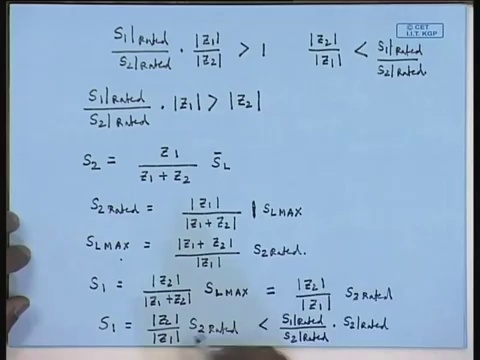 © CET
I.I.T. KGP
S1|Rated / S2|Rated · |Z1| / |Z2| > 1    |Z2| / |Z1| < S1|Rated / S2|Rated.
S1|Rated / S2|Rated · |Z1| > |Z2|
S2 = Z1 / Z1 + Z2 S̄L
S2 Rated = |Z1| / |Z1 + Z2| | SLMAX
SLMAX = |Z1 + Z2| / |Z1| S2 Rated.
S1 = |Z2| / |Z1 + Z2| SLMAX = |Z2| / |Z1| S2 Rated
S1 = |Z2| / |Z1| S2 Rated < S1|Rated / S2|Rated · S2|Rated